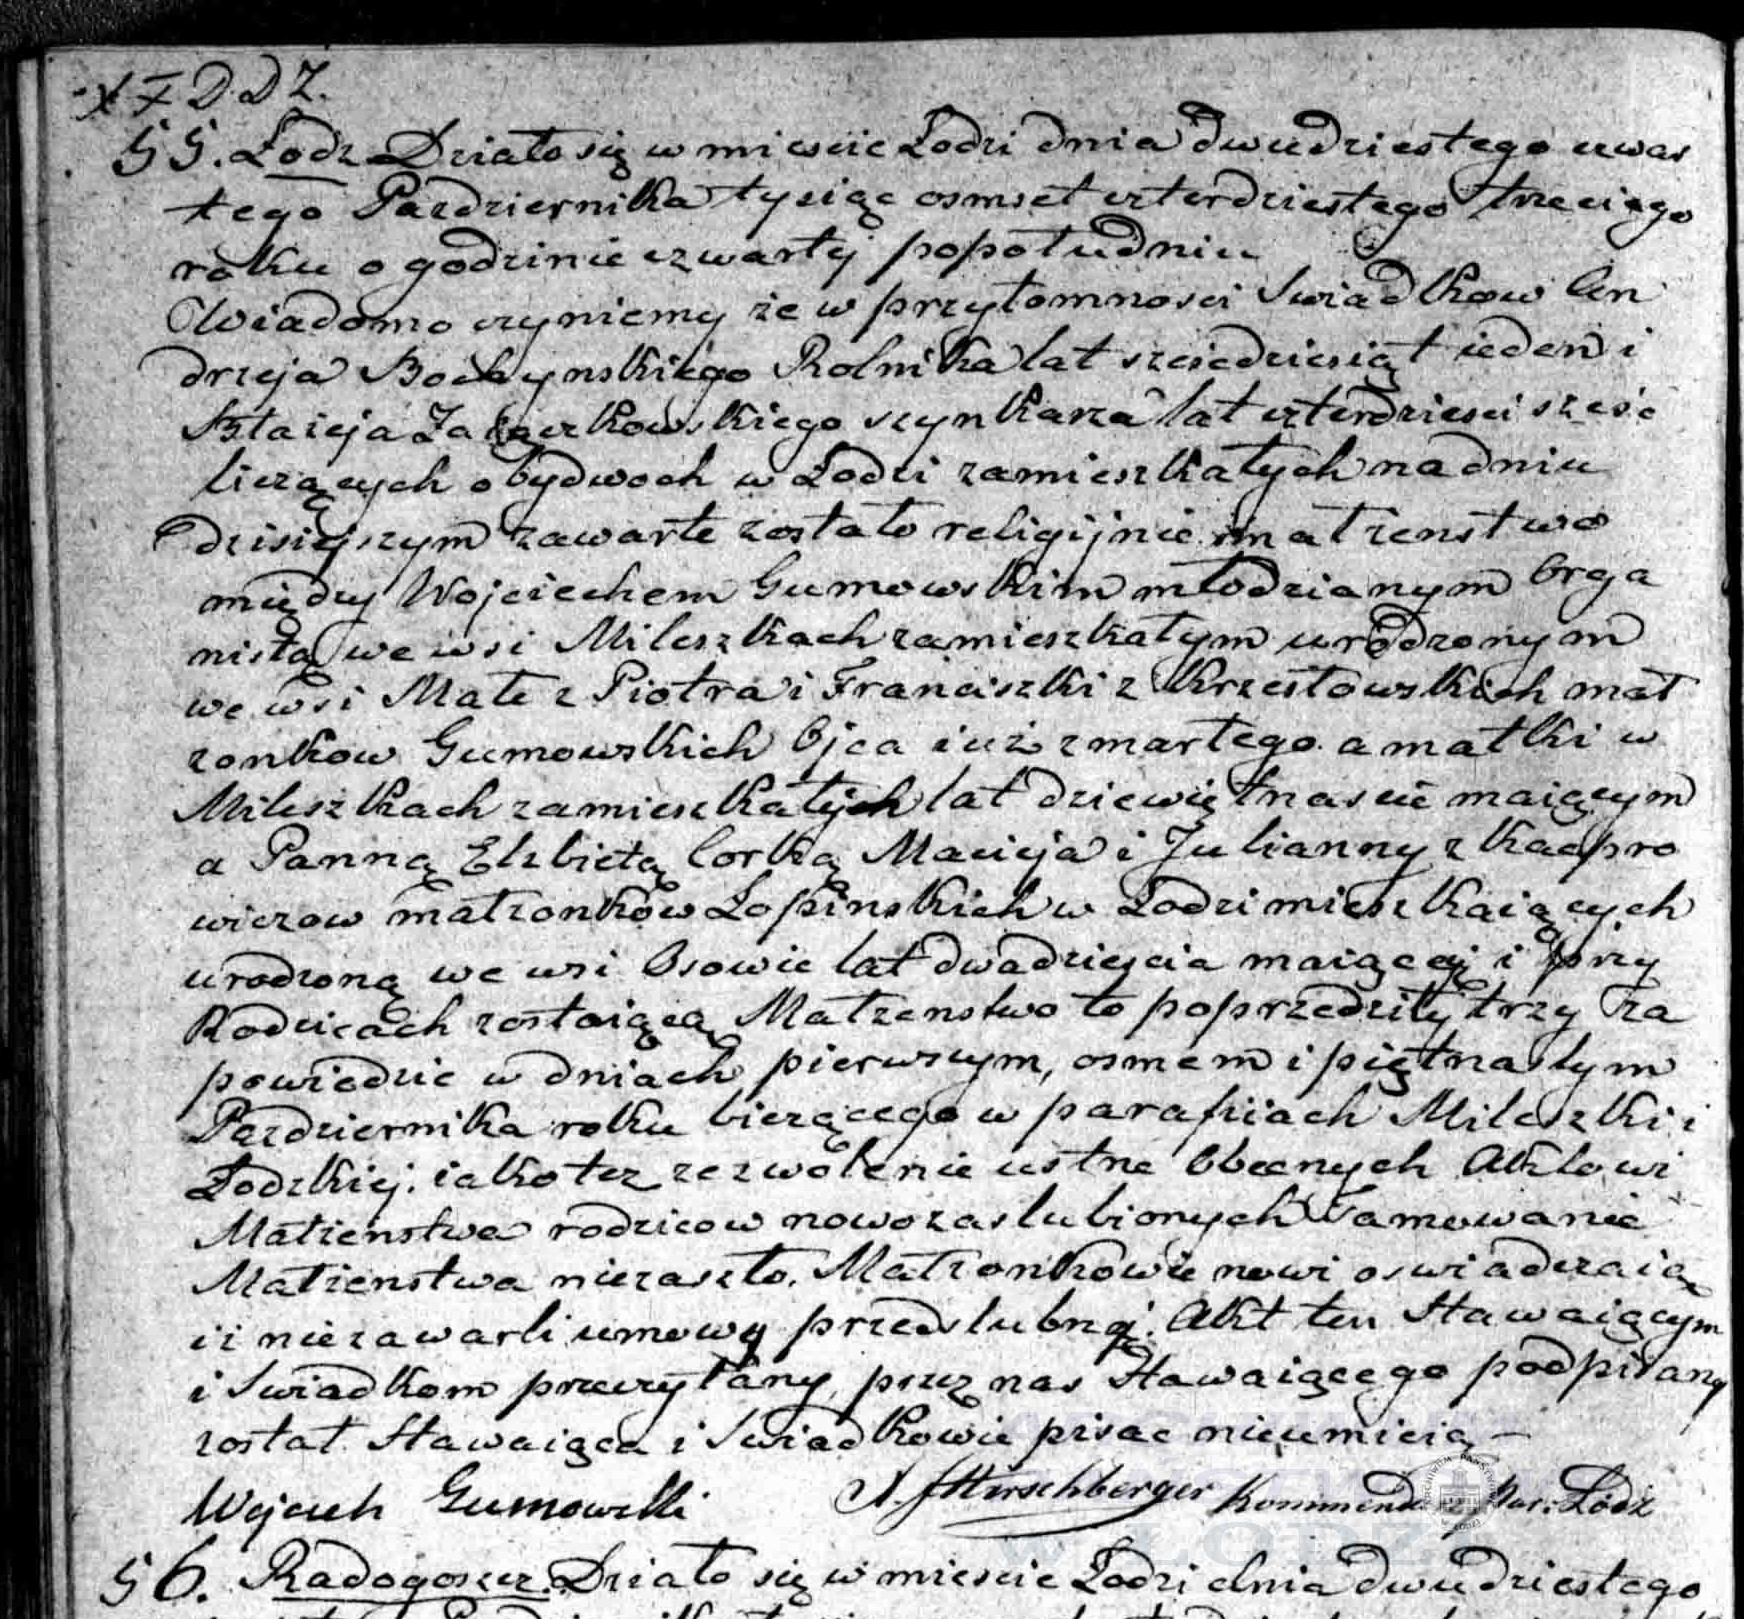 X F D. D Z.
55. Łodz Działo się w miescie Łodzi dnia dwudziestego czwar
tego Pazdziernika tysiąc osmset czterdziestego trzeciego
roku o godzinie czwarty popołudniu
Wiadomo czyniemy że w przytomnosci Swiadkow An
drzeja Rolnika lat szescdziesiąt ieden i
Błaieja szynkarza lat czterdziesci szesc
liczących obydwoch w Łodzi zamieszkałych na dniu
dzisiejszym zawarte zostało religijnie małzenstwo
między Wojciechem Gumowskim młodzianym Orga
nistą we wsi Mileszkach zamieszkałym urodzonym
we wsi Małe z Piotra i Franciszki z Krzesłowskich mał
zonkow Gumowskich Ojca iuż zmarłego a matki w
Mileszkach zamieszkałych lat dziewiętnascie maiącym
a Panną Elzbietą Corką Macieja i Julianny z Kacpro
wiczow małzonków Łopinskich w Łodzi mieszkaiących
urodzoną we wsi Osowie lat dwadziescia maiącej i przy
Rodzicach zostaiącą Małzenstwo to poprzedziły trzy Za
powiedzie w dniach pierwszym, osmem i piętnastym
Pazdziernika roku bieżącego w parafiach Mileszki i
Łodzkiej. iako też zezwolenie ustne Obecnych Aktowi
Małzenstwa rodzicow nowozaslubionych Tamowanie
Małzenstwa niezaszło. Małzonkowie nowi oswiadczaią
iż niezawarli umowy przedslubnej. Akt ten Stawaiącym
i Swiadkom przeczytany, przez nas Stawaiącego podpisany
został. Stawaiąca i Swiadkowie pisac nieumieią –
Wojciech Gumowski A. J Hirschberger Kommend Par: Łódz
56. Radogoszcz. Działo się w miescie Łodzi dnia dwudziestego